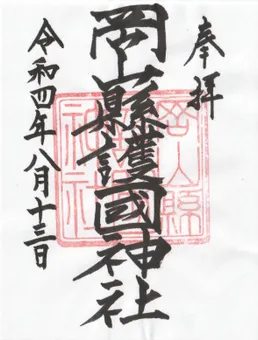 奉拝
岡山縣護國神社
令和四年八月十三日